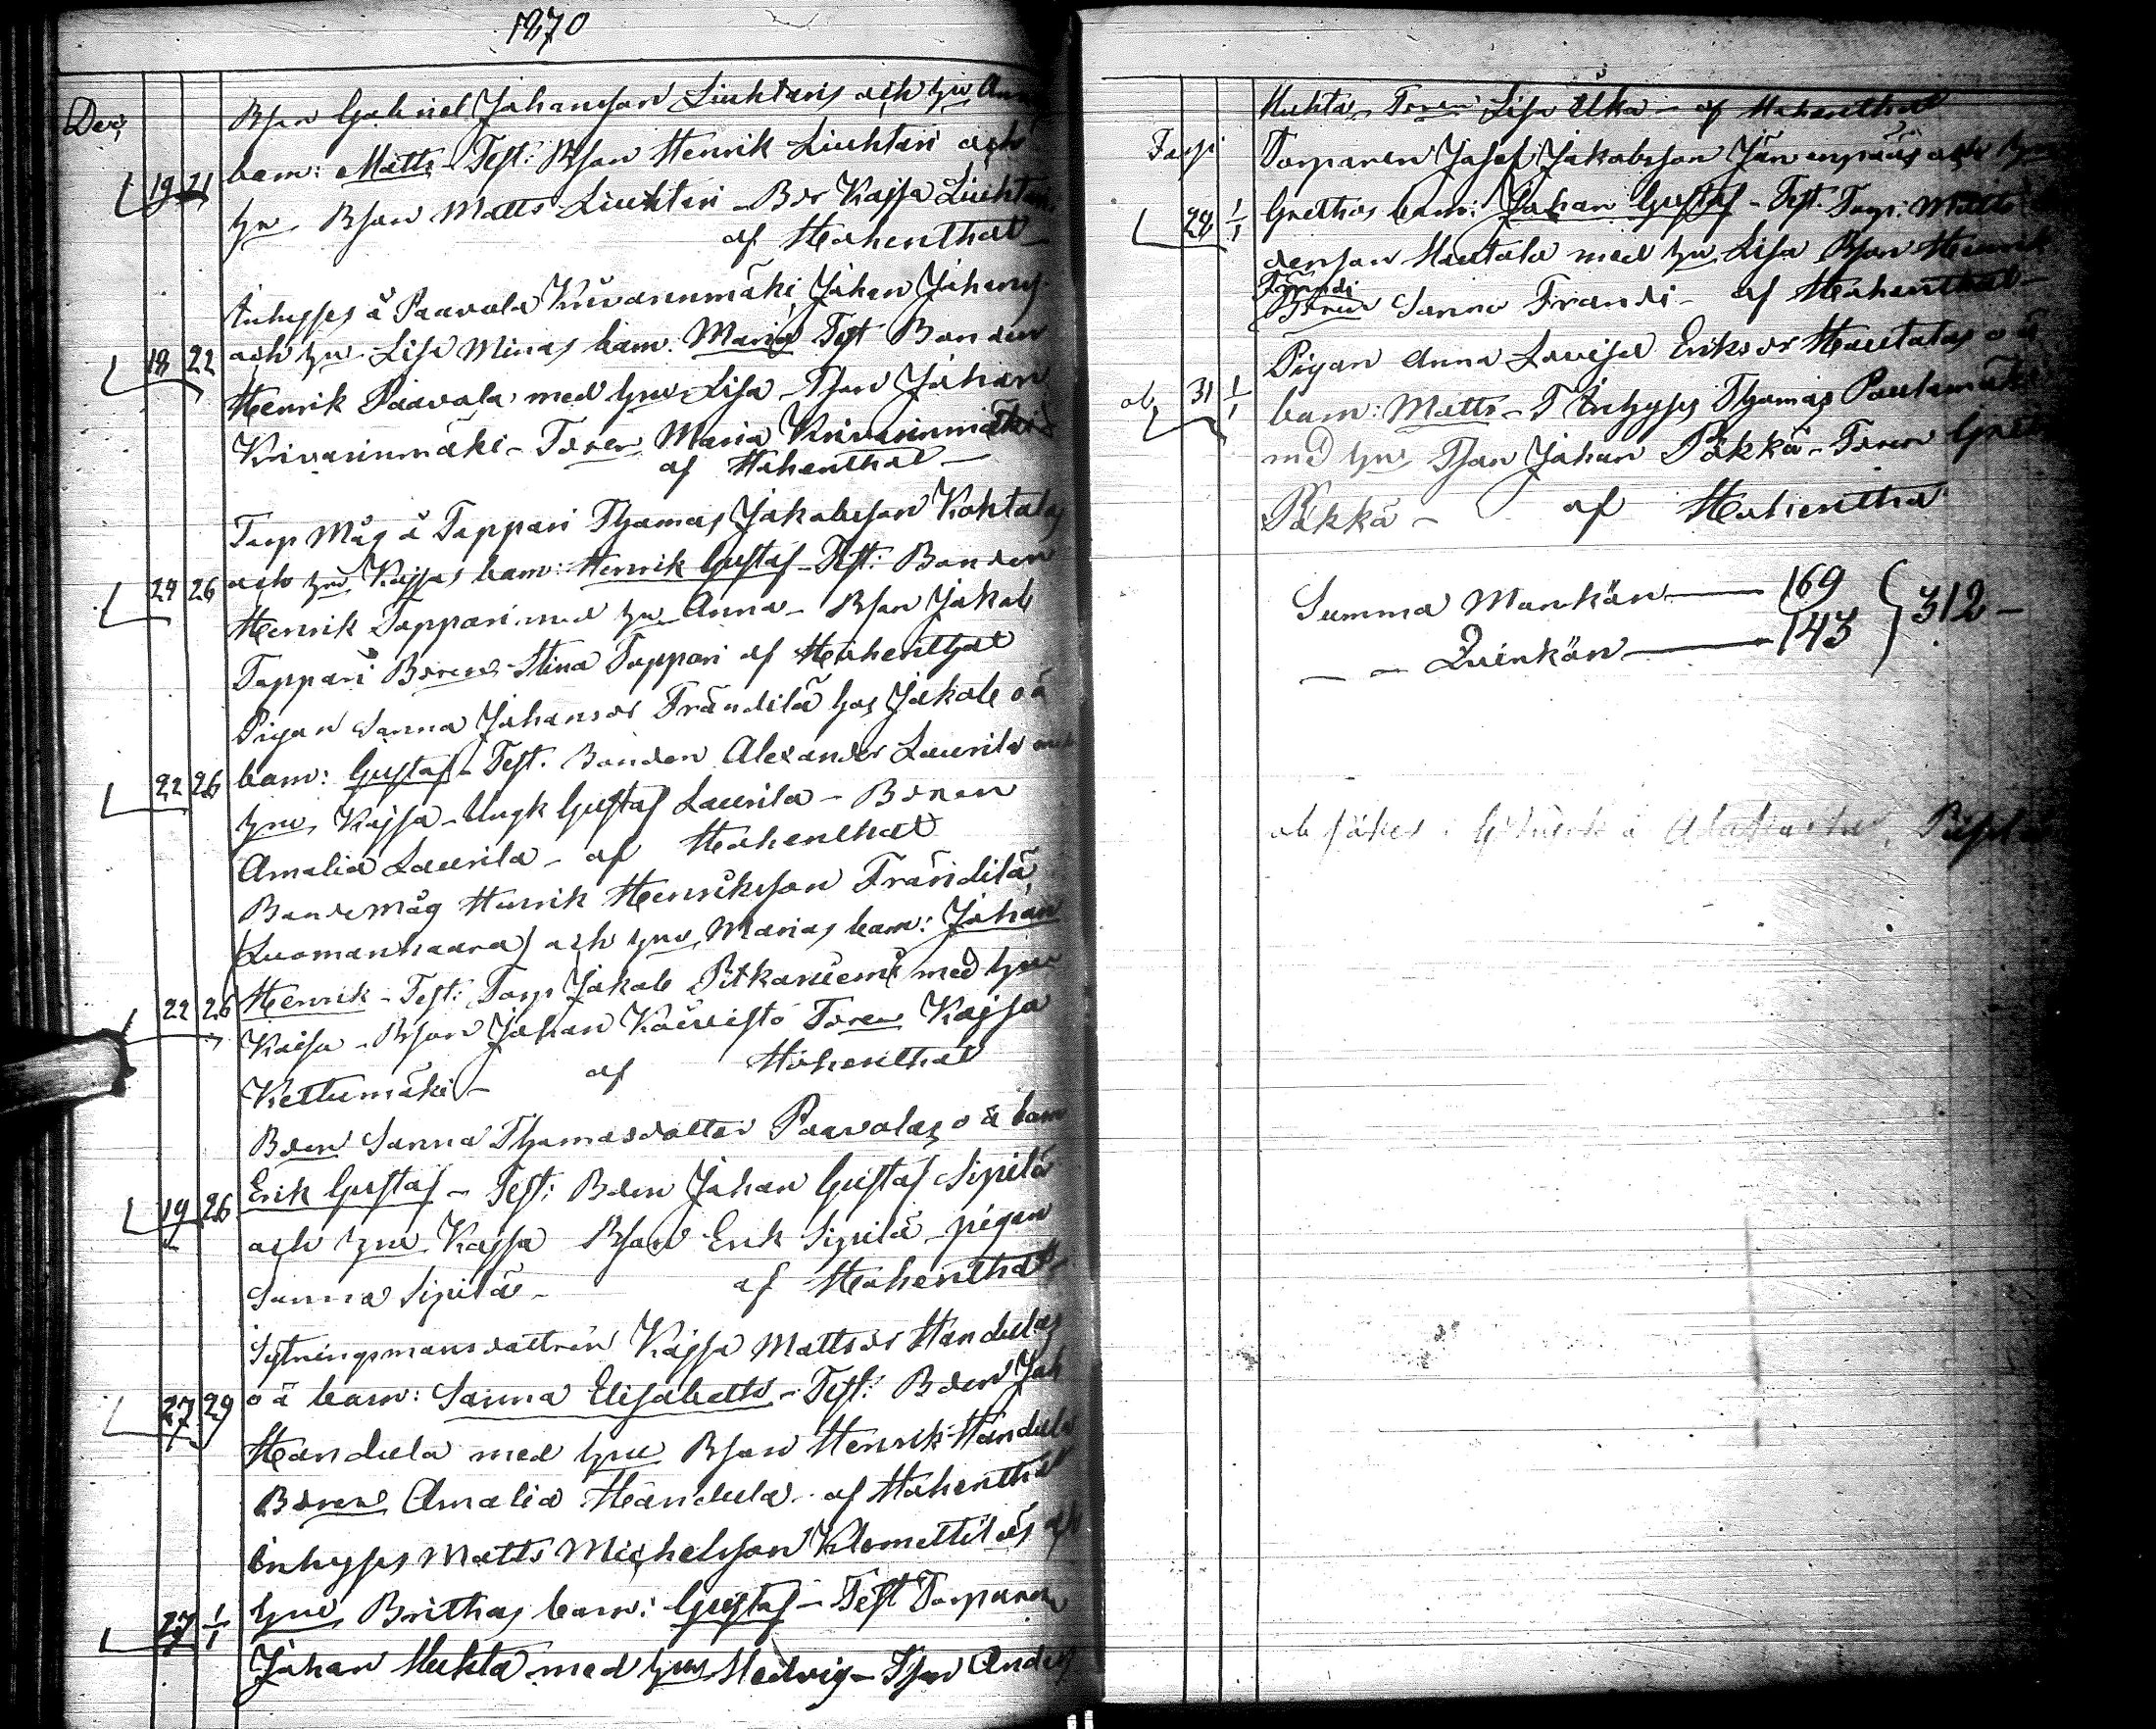 1870
Dec,
Bson Gabriel Johansson Liuhtaris och hu Anna
19 21 barn: Matts - Test: Bson Henrik Liuhtari och
hu Bson Matts Liuhtari - Bdr Kajsa Liuhtari
af Hohenthal -
Inhyses å Paavola Kuivasenmäki Johan Johans
18 22 och hu Lisa Minas barn: Maria Test Bonden
Henrik Paavola med hu Lisa - Tson Johan
- Tdren Maria
af Hohenthal -
Torp Måg å Tappari Thomas Jakobsson Kohtalas
24 26 och hu Kajsas barn: Henrik Gustaf - Test: Bonden
Henrik Tappari med hu Anna - Bson Jakob
Tappari Bdren Stina Tappari af Hohenthal
Pigan Sanna Johansdr Frändilä hos Jakob o ä
22 26 barn: Gustaf - Test. Bonden Alexander Laurila med
hu Kajsa - Ungk Gustaf Laurila - Bdren
Amalia Laurila - af Hohenthal
Bonde Måg Henrik Henriksson Frändilä
(Luomanhaara) och hu Marias barn: Johan
22 26 Henrik - Test: Torp Jakob Pitkäniemi med hu
Kaisa - Bson Johan Koivisto Tdren Kajsa
Kettumäki - af Hohenthal
Bdren Sanna Thomasdotter Paavolas o ä barn
19 26 Erik Gustaf - Test: Bden Johan Gustaf Sipilä
och hu Kajsa Bson Erik Sipilä - pigan
Sanna Sipilä - af Hohenthal
Sytningsmansdottren Kajsa Mattsdr Handulas
27 29 o ä barn: Sanna Elisabeth - Test: Bden Joh
Handula med hu Bson Henrik Handula
Bdren Amalia Handula - af Hohenthal
Inhyses Matts Michelsson Klemettiläs och
27 1/1 hu Brithas barn: Gustaf - Test Torparen
Johan Huhta med hu Hedvig - Tson Anders
Huhta, Tdren Lisa Ulka - af Hohenthal
Torparen Josef Jakobsson Järvenpääs och hu
1/1 Grethas barn: Johan Gustaf - Test. Torp: Matts
Hautala med hu Lisa Bson Henrik
Frändi
Bdren Sanna Frändi - af Hohenthal
Pigan Anna Lovisa Eriksdr Hautalas o ä
31 1/1 barn: Matts - T Inhyses Thomas
med hu Tson Johan Päkkä - Tdren Greta
Päkkä - af Hohentha
Summa Mankön — 169
312 -
— - Qvinkön — 143